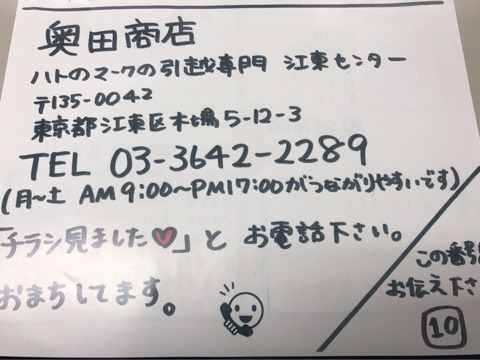 奥田商店
ハトのマークの引越専門 江東センター
〒135-0042
東京都江東区木場5-12-3
TEL 03-3642-2289
(月～土 AM9:00～PM17:00がつながりやすいです)
「チラシ見ました♥」と お電話下さい。
おまちしてます。
この番号
お伝え下さ
10